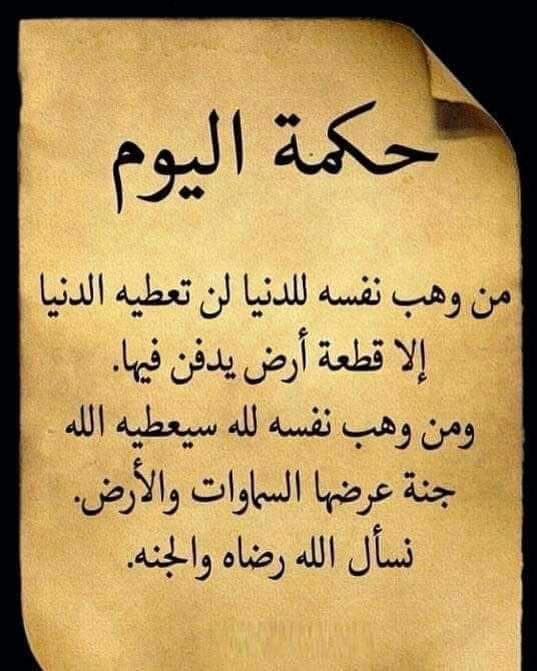 حكمة اليوم
من وهب نفسه للدنيا لن تعطيه الدنيا
إلا قطعة أرض يدفن فيها.
ومن وهب نفسه لله سيعطيه الله
جنة عرضها السماوات والأرض.
نسأل الله رضاه والجنه.